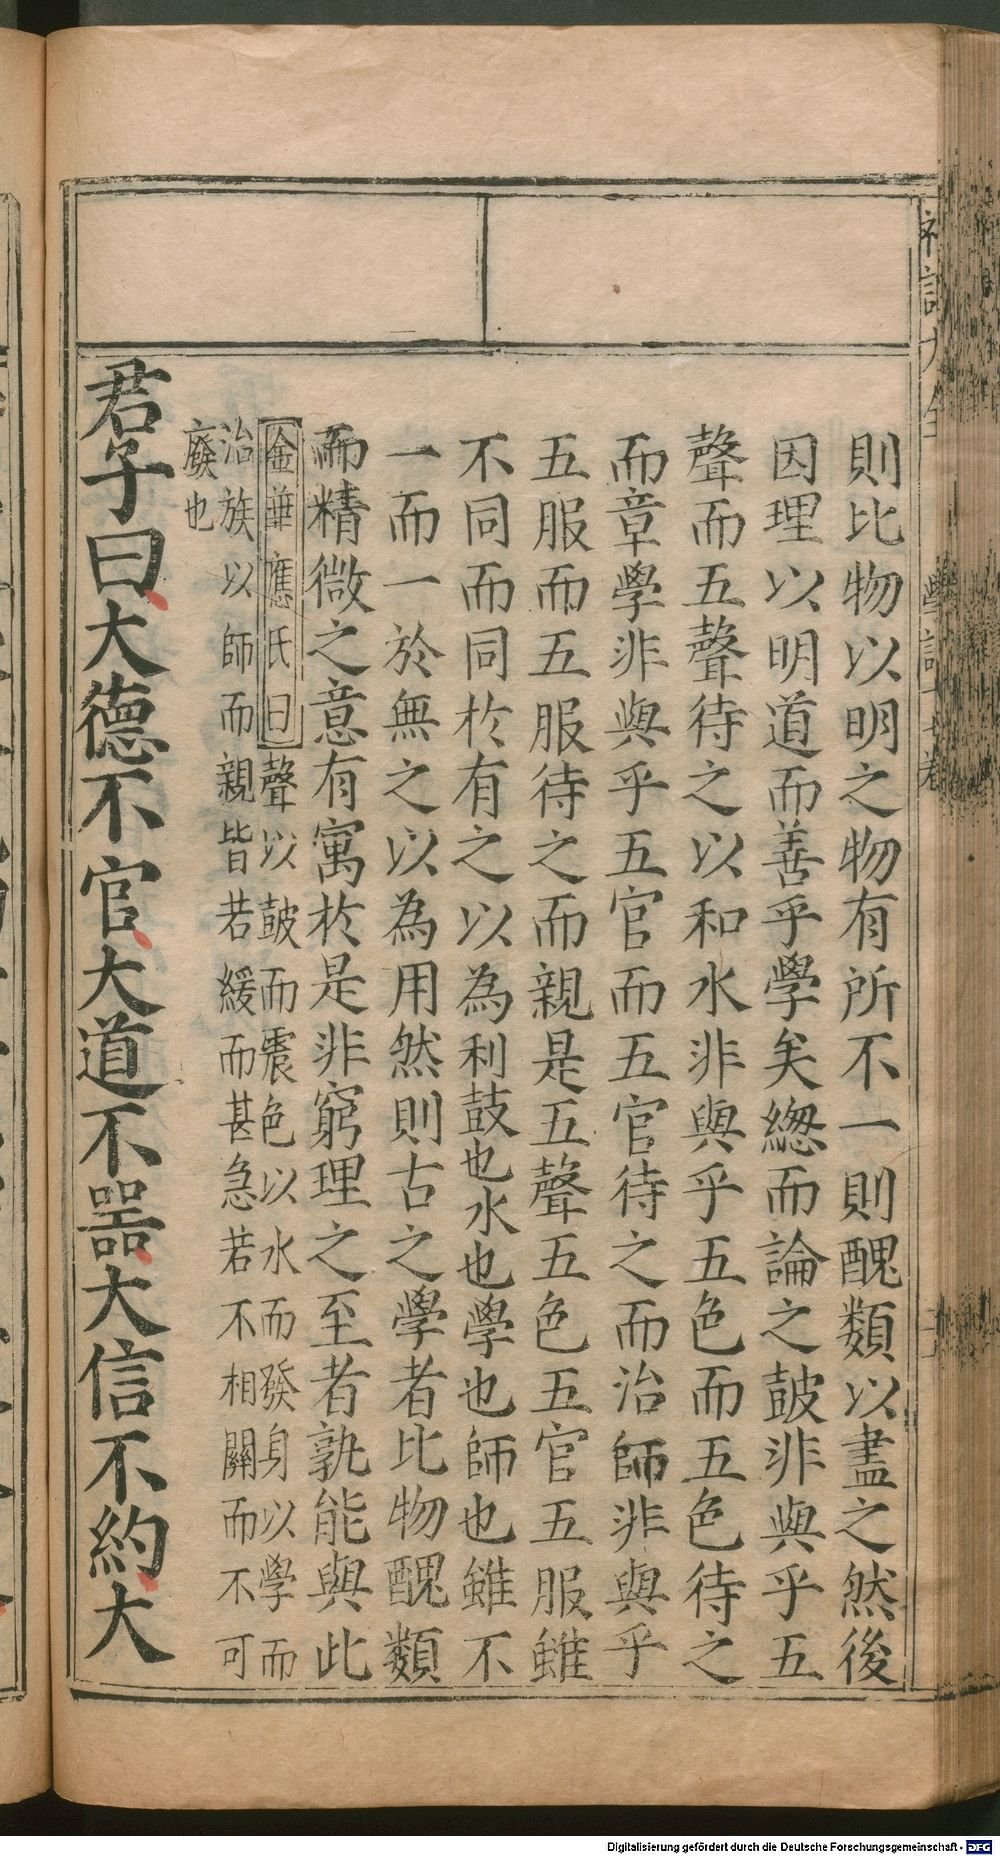 則比物以明之物有所不一則醜類以盡之然後
因理以明道而善乎學矣緫而論之鼓非與乎五
聲而五聲待之以和水非與乎五色而五色待之
而章學非與乎五官而五官待之而治師非與乎
五服而五服待之而親是五聲五色五官五服雖
不同而同於有之以為利鼓也水也學也師也雖不
一而一於無之以為用然則古之學者比物醜類
而精微之意有寓於是非窮理之至者孰能與此
金華應氏曰聲以鼓而震色以水而發身以學而
治族以師而親皆若緩而甚急若不相關而不可
廢也
君子曰大德不官大道不噐大信不約大
Digitalisierung gefördert durch die Deutsche Forschungsgemeinschaft - DFG